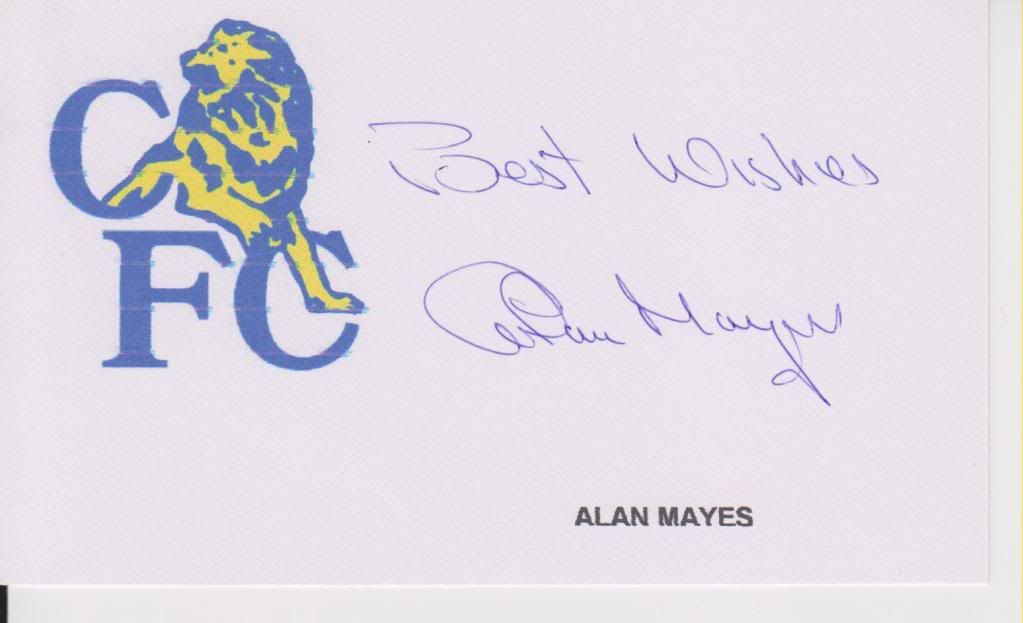 CFC
Best Wishes
Alan Mayes
ALAN MAYES